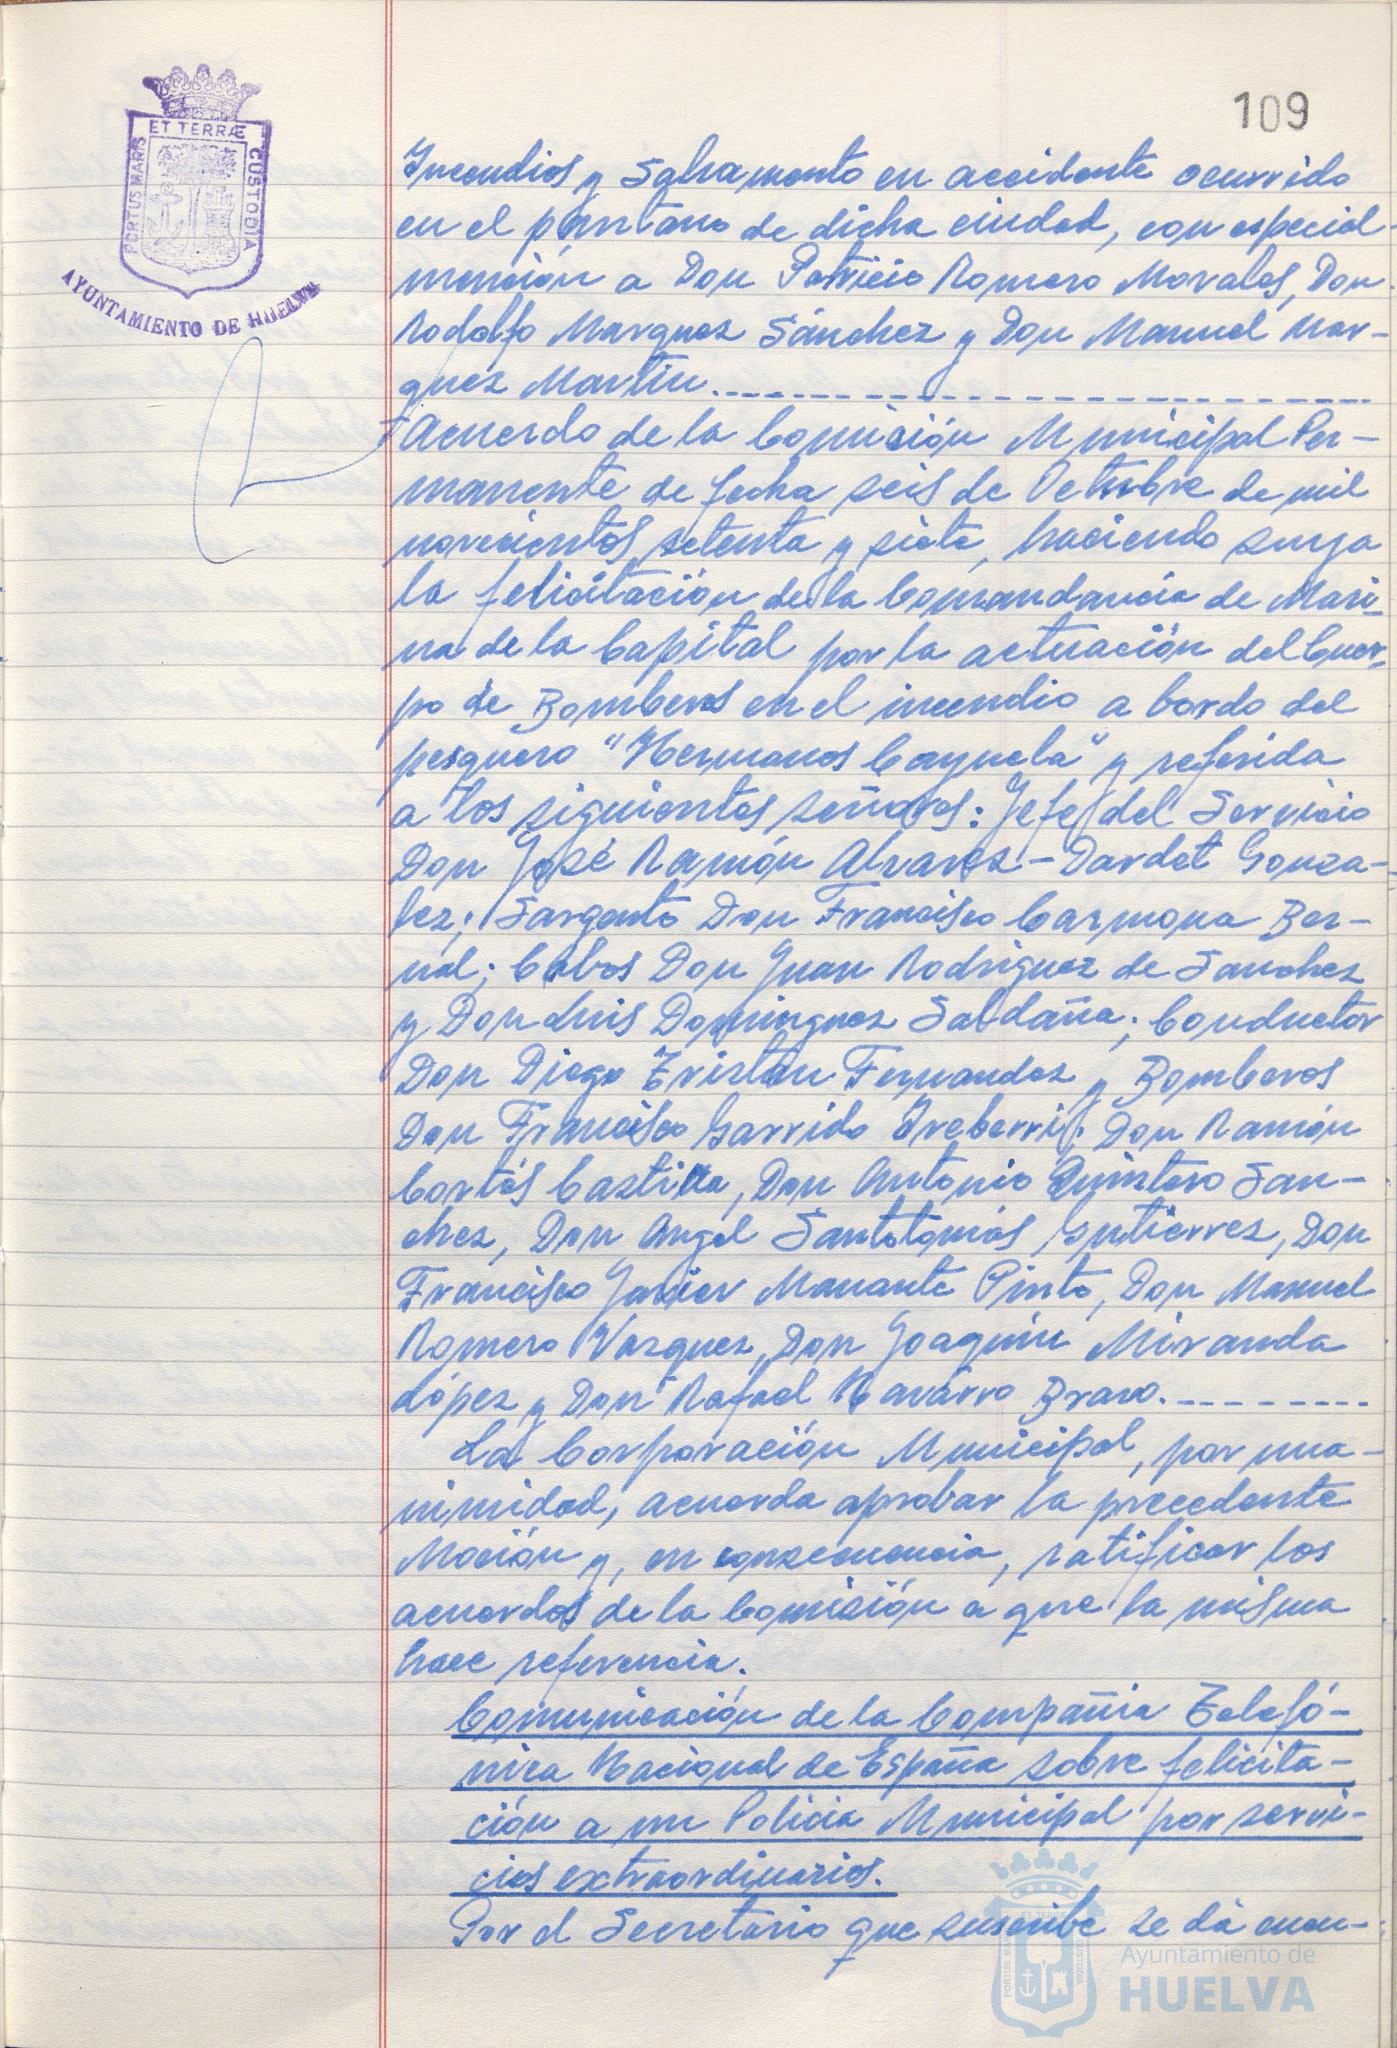 109
ET TERRÆ
PORTUS MARIS
CUSTODIA
AYUNTAMIENTO DE HUELVA
Incendios y Salvamento en accidente ocurrido
en el pantano de dicha ciudad, con especial
mención a Don Patricio Romero Morales, Don
Rodolfo Marquez Sánchez y Don Manuel Mar-
quez Martin.
Acuerdo de la Comisión Municipal Per-
manente de fecha seis de Octubre de mil
novecientos setenta y siete, haciendo suya
la felicitación de la Comandancia de Mari-
na de la Capital por la actuación del Cuer-
po de Bomberos en el incendio a bordo del
pesquero "Hermanos Cayuela" y referida
a los siguientes señores: Jefe del Servicio
Don José Ramón Alvarez-Dardet Gonza-
lez; Sargento Don Francisco Carmona Ber-
nal; Cabos Don Juan Rodriguez de Sanchez
y Don Luis Dominguez Saldaña; Conductor
Don Diego Tristan Fernandez y Bomberos
Don Francisco Garrido Ireberri, Don Ramón
Cortés Castilla, Don Antonio Quintero San-
chez, Don Angel Santotomás Gutierrez, Don
Francisco Javier Manante Pinto, Don Manuel
Romero Vazquez, Don Joaquin Miranda
López y Don Rafael Navarro Bravo.
La Corporación Municipal, por una-
nimidad, acuerda aprobar la precedente
Moción y, en consecuencia, ratificar los
acuerdos de la Comisión a que la misma
hace referencia.
Comunicación de la Compañia Telefó-
nica Nacional de España sobre felicita-
ción a un Policia Municipal por servi-
cios extraordinarios.
Por el Secretario que suscribe se dá cuen-
Ayuntamiento de
HUELVA